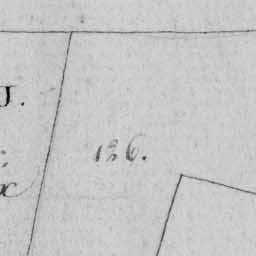 J.
126.
x